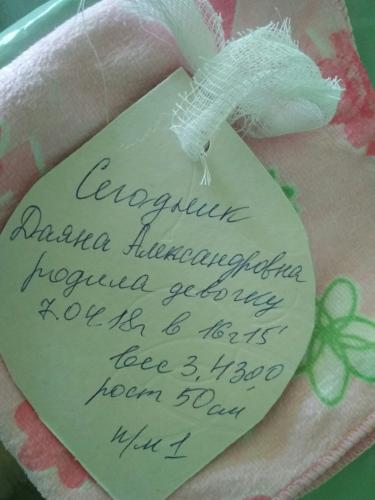 Сегодник
Даяна Александровна
родила девочку
7.04.18г в 16ч15'
вес 3.430,0
рост 50см
н/м 1